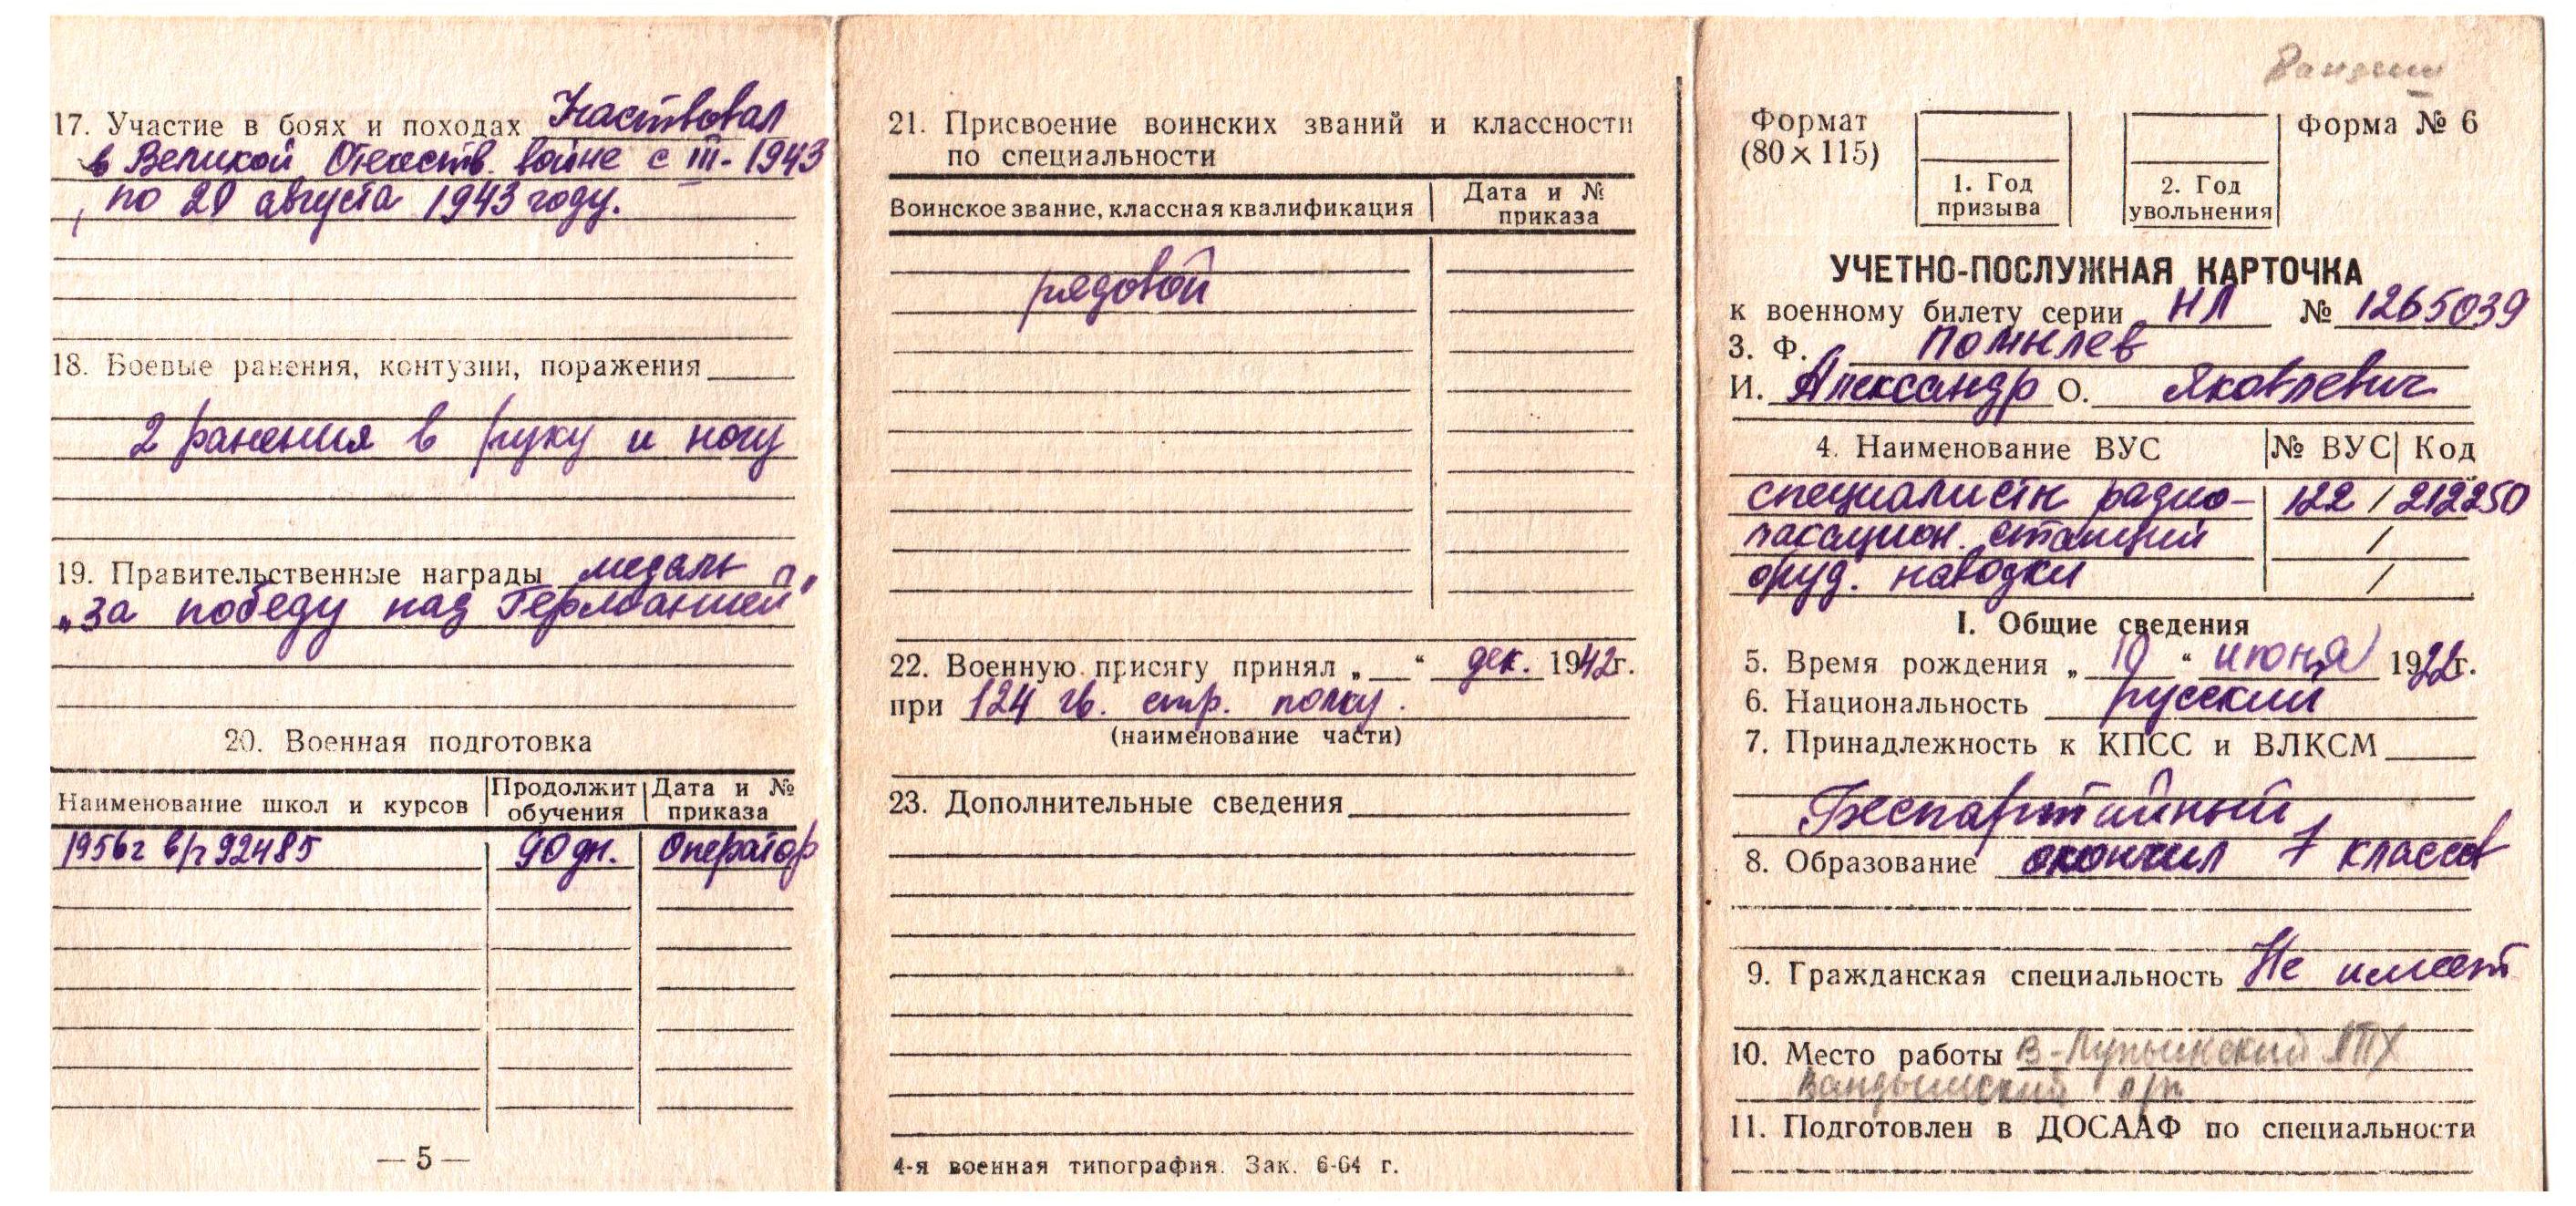 17. Участие в боях и походах Участвовал
в Великой Отечеств. войне с III-1943
по 20 августа 1943 году.
18. Боевые ранения, контузии, поражения
2 ранения в руку и ногу
19. Правительственные награды медаль
„За победу над Германией"
20. Военная подготовка
Наименование школ и курсов | Продолжит обучения | Дата и № приказа
1956г в/ч 92485 | 90 дн. | Оператор
— 5 —
21. Присвоение воинских званий и классности
по специальности
Воинское звание, классная квалификация | Дата и № приказа
рядовой
22. Военную присягу принял „ “ дек. 1942г.
при 124 гв. стр. полку.
(наименование части)
23. Дополнительные сведения
4-я военная типография. Зак. 6-64 г.
Формат
(80×115)
1. Год
призыва
2. Год
увольнения
Форма № 6
УЧЕТНО-ПОСЛУЖНАЯ КАРТОЧКА
к военному билету серии НЛ № 1265039
3. Ф. Помылев
И. Александр О. Яковлевич
4. Наименование ВУС | № ВУС | Код
специалисты радио- 122 / 212250
локацион. станций /
оруд. наводки /
I. Общие сведения
5. Время рождения „ 10 “ июня 1922г.
6. Национальность русский
7. Принадлежность к КПСС и ВЛКСМ
Беспартийный
8. Образование окончил 7 классов
9. Гражданская специальность Не имеет
10. Место работы В-Лупьинский ЛПХ
Вандышский
11. Подготовлен в ДОСААФ по специальности